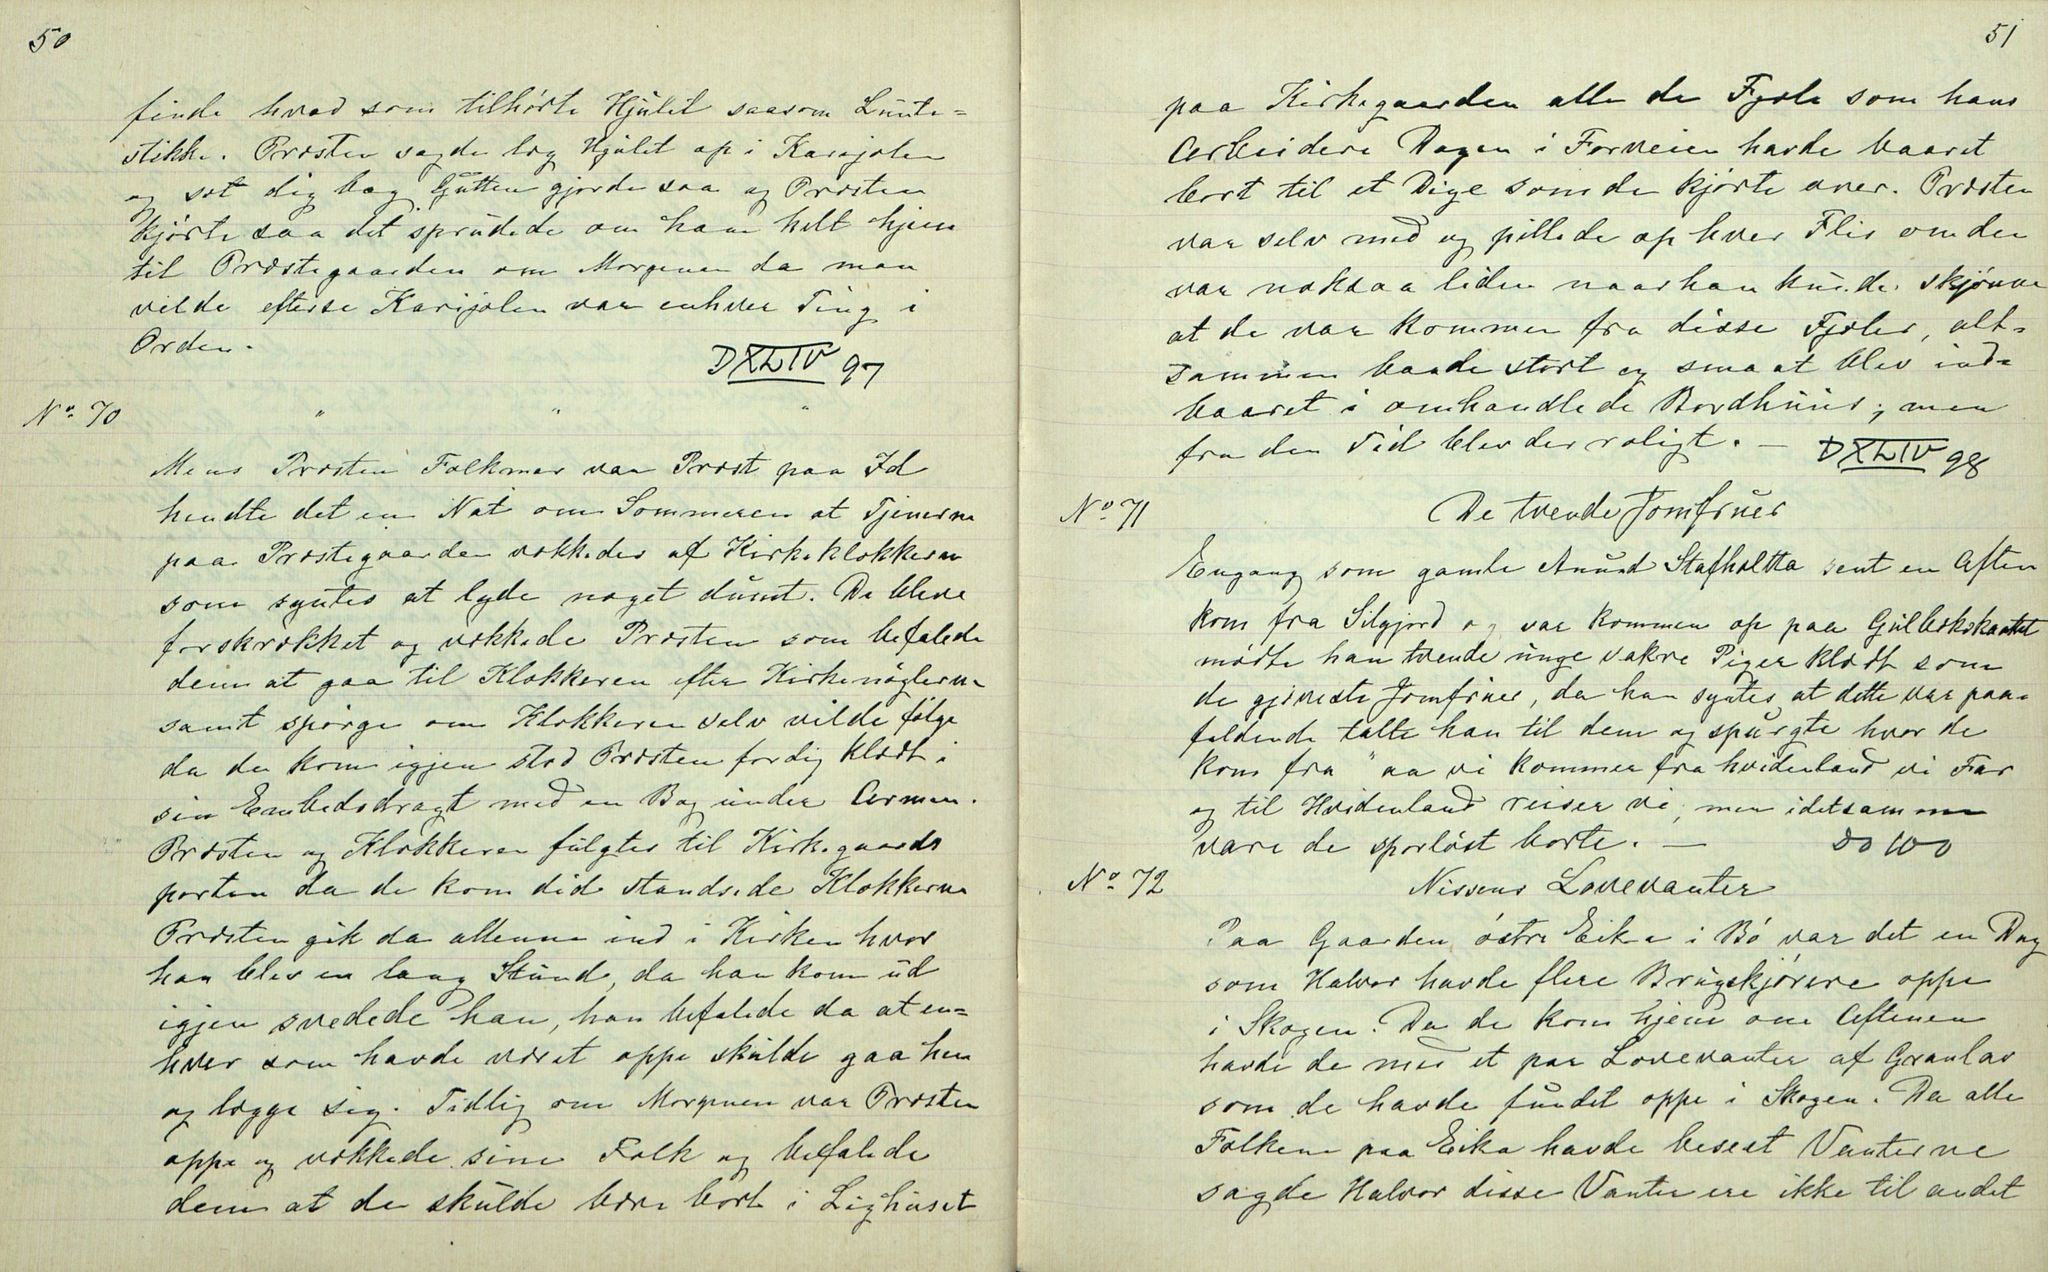 50
finde hvad som tilhørte Hjulet saasom Lunte=
stikke. Præsten sagde læg Hjulet op i Karjolen
og sæt dig bag Gutten gjorde saa og Præsten
kjørte saa det sprudede om ham helt hjem
til Præstegaarden om Morgenen da man
vilde efterse Karijolen var enhver Ting i
Orden.
DXLIV 97
No. 70 " " "
Mens Præsten Folkmar var Præst paa Id
hendte det en Nat om Sommeren at Tjenerne
paa Præstegaarden vækkedes af Kirkeklokkerne
som syntes at lyde noget dumt. De bleve
forskrækket og vækkede Præsten som befalede
dem at gaa til Klokkeren efter Kirkenøglerne
samt spørge om Klokkeren selv vilde følge
da de kom igjen stod Præsten færdig klædt i
sin Embedsdragt med en Bog under Armen.
Præsten og Klokkeren fulgtes til Kirkegaards
porten da de kom did standsede Klokkerne
Præsten gik da allene ind i Kirken hvor
han blev en lang Stund, da han kom ud
igjen svedede han, han befalede da at en=
hver som havde været oppe skulde gaa hen
og lægge sig. Tidlig om Morgenen var Præsten
oppe og vækkede sine Folk og befalede
dem at de skulde bære bort i Lighuset
51
paa Kirkegaarden alle de Fjøle som hans
Arbeidere Dagen i Forveien havde baaret
bort til et Dige som de kjørte over. Præsten
var selv med og pillede op hver Flis om den
var noksaa liden naar han kunde skjønne
at de var kommen fra disse Fjøler, alt=
sammen baade stort og smaat blev ind=
baaret i omhandlede Bordhuus; men
fra den Tid blev der roligt. —
DXLIV 98
No. 71 De tvende Jomfruer
Engang som gamle Anund Stafholtta sent en Aften
kom fra Silgjord og var kommen op paa Gulbækskaatet
mødte han tvende unge vakre Piger klædt som
de gjæveste Jomfruer, da han syntes at dette var paa=
faldende talte han til dem og spurgte hvor de
kom fra "aa vi kommer fra hvidenland vi Far
og til Hvidenland reiser vi, men i detsamme
vare de sporløst borte. — do 100
No. 72 Nissens Lovevanter
Paa Gaarden østre Eika i Bø var det en Dag
som Halvor havde flere Brugskjørere oppe
i Skogen. Da de kom hjem om Aftenen
havde de med et par Lovevanter af Granlav
som de havde fundet oppe i Skogen. Da alle
Folkene paa Eika havde beseet Vanterne
sagde Halvor disse Vanter ere ikke til andet